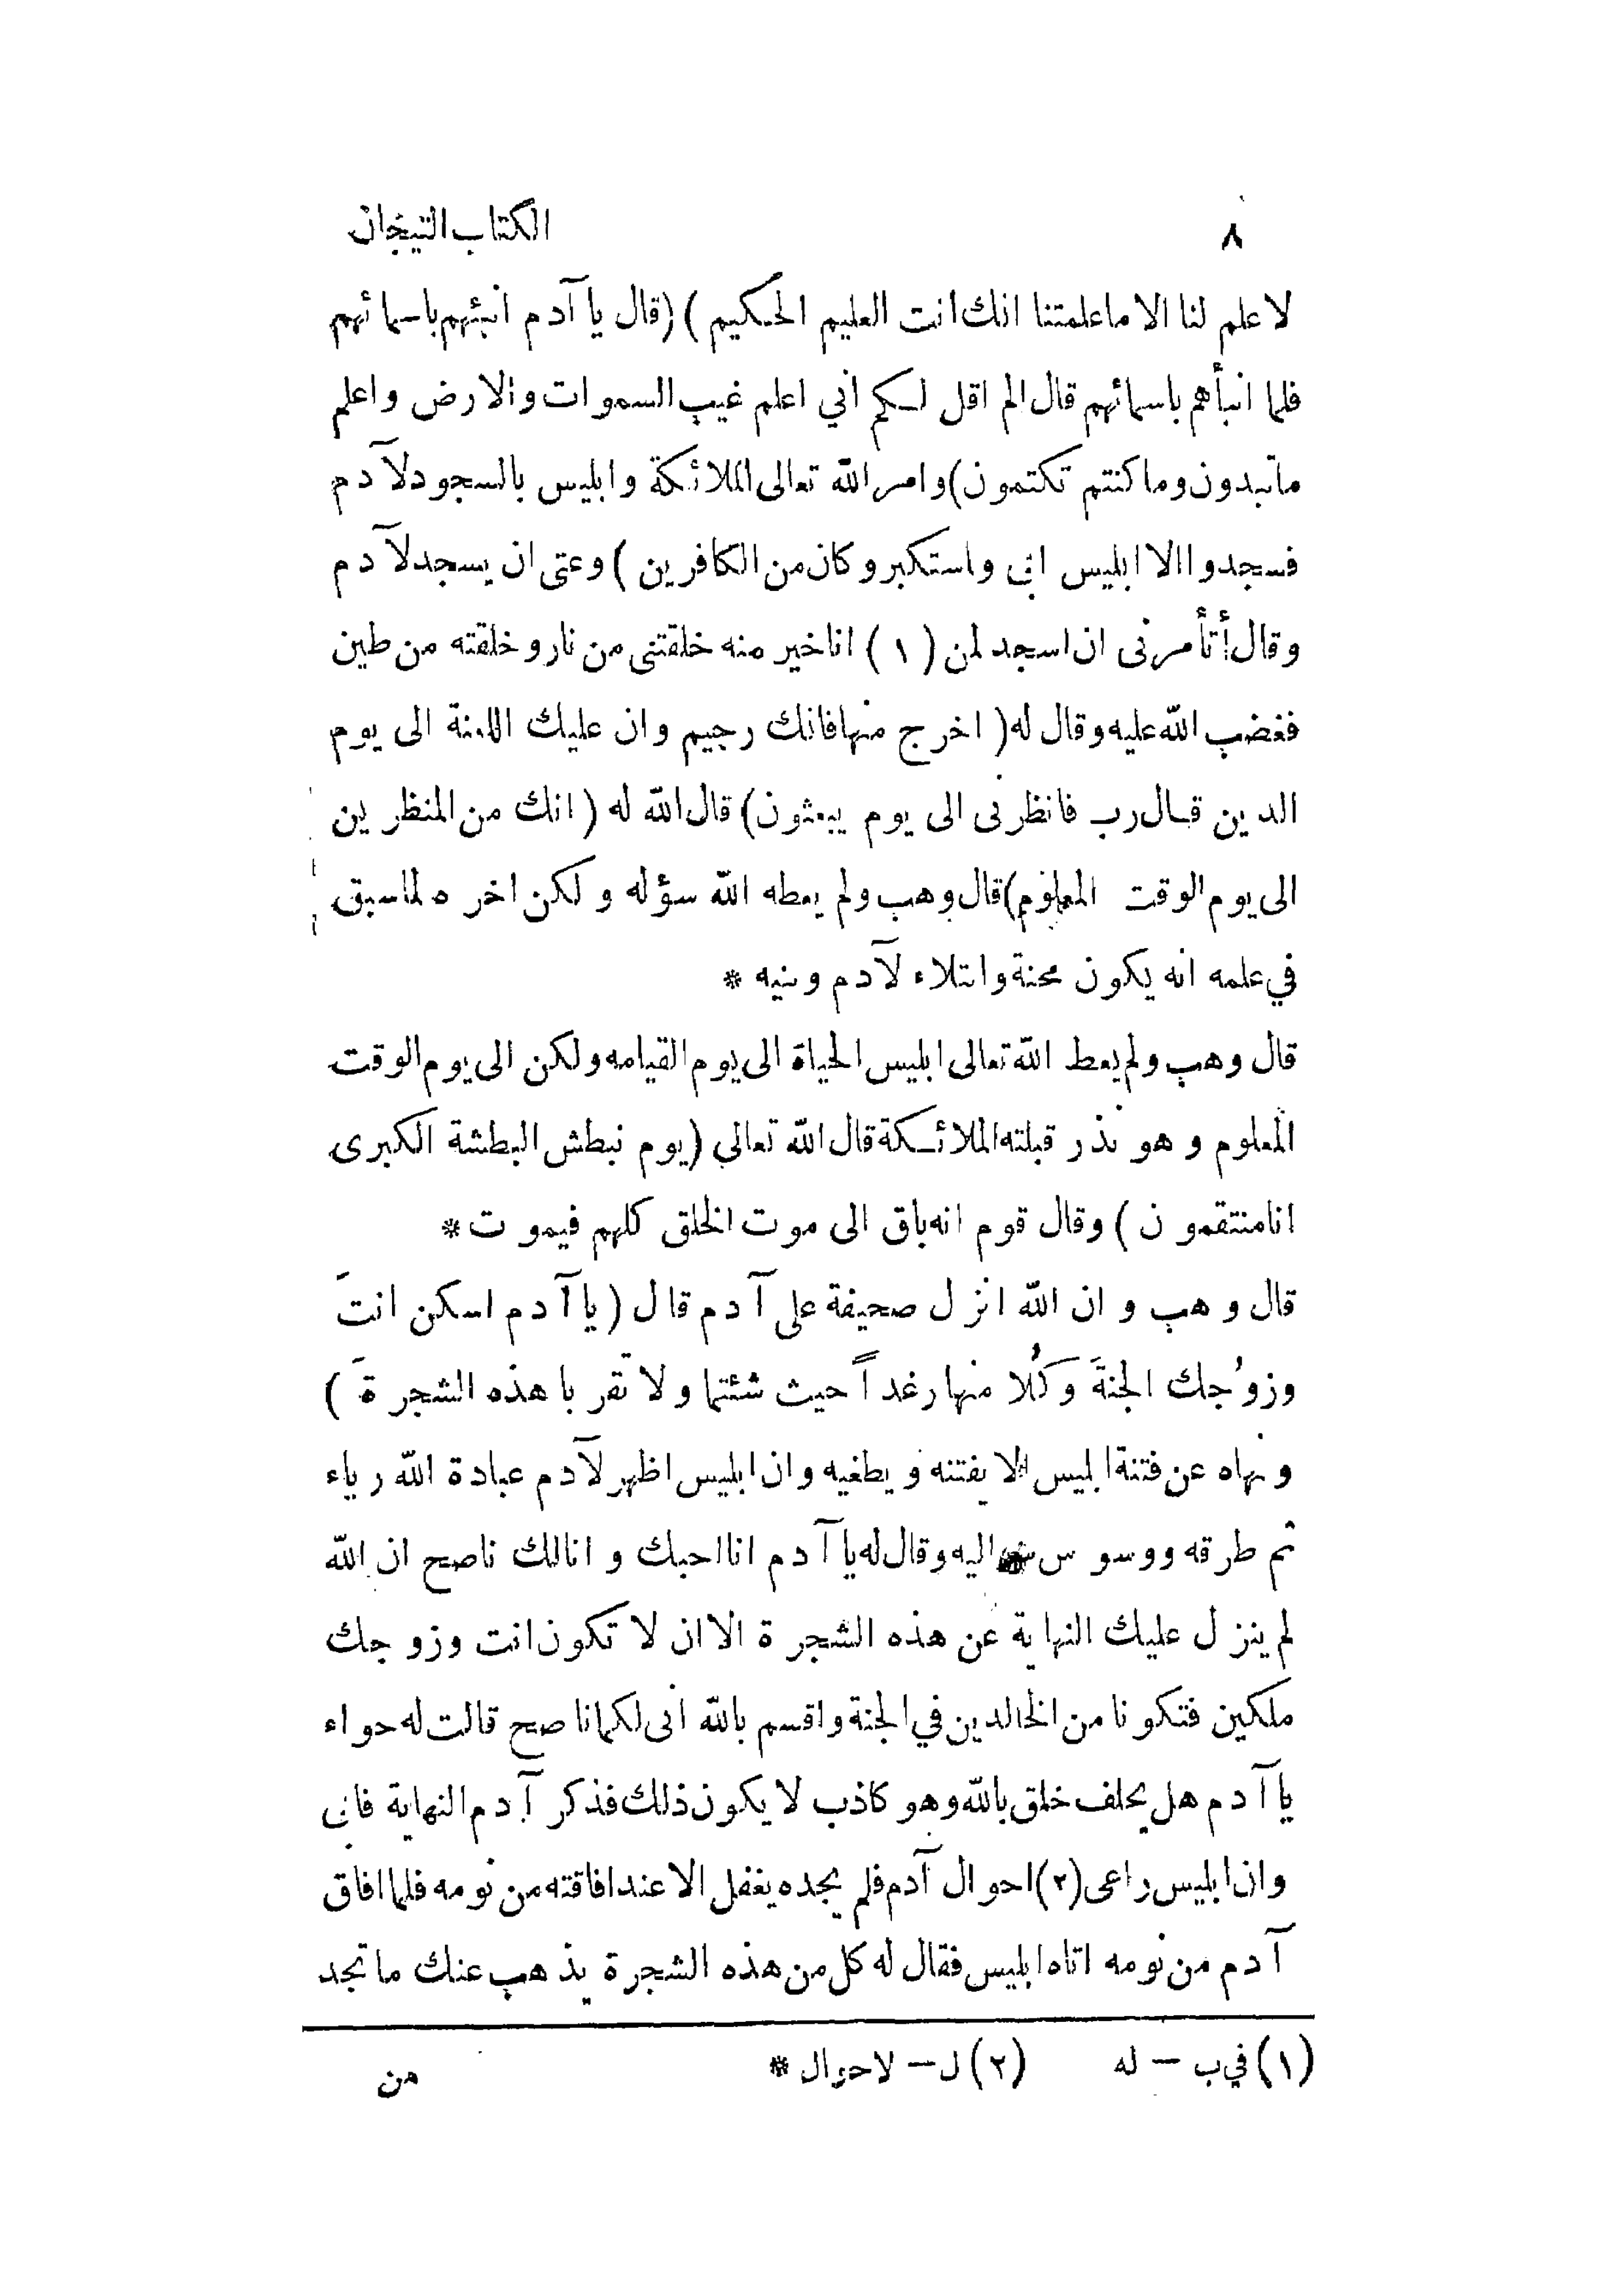 ٨ الكتاب التيجان
لا علم لنا الا ما علمتنا انك انت العليم الحكيم ) (قال يا آدم انبئهم باسمائهم
فلما انبأهم باسمائهم قال الم اقل لكم اني اعلم غيب السموات والارض واعلم
ما تبدون وما كنتم تكتمون) وامر الله تعالى الملائكة وابليس بالسجود لآدم
فسجدوا الا ابليس ابى واستكبر وكان من الكافرين ) وعتى ان يسجد لآدم
وقال أتأمرنى ان اسجد لمن (١) انا خير منه خلقتنى من نار وخلقته من طين
فغضب الله عليه وقال له ( اخرج منها فانك رجيم وان عليك اللعنة الى يوم
الدين قال رب فانظرنى الى يوم يبعثون) قال الله له ( انك من المنظرين
الى يوم الوقت المعلوم) قال وهب ولم يعطه الله سؤله ولكن اخره لما سبق
في علمه انه يكون محنة وابتلاء لآدم وبنيه *
قال وهب ولم يعط الله تعالى ابليس الحياة الى يوم القيامه ولكن الى يوم الوقت
المعلوم وهو نذر قبلته الملائكة قال الله تعالى (يوم نبطش البطشة الكبرى
انا منتقمون ) وقال قوم انه باق الى موت الخلق كلهم فيموت *
قال وهب وان الله انزل صحيفة على آدم قال ( يا آدم اسكن انتَ
وزوُجك الجنةَ وَكُلا منها رغداً حيث شئتما ولا تقربا هذه الشجرةَ )
ونهاه عن فتنة ابليس الا يفتنه ويطغيه وان ابليس اظهر لآدم عبادة الله رياء
ثم طرقه ووسوس اليه وقال له يا آدم انا احبك وانا لك ناصح ان الله
لم ينزل عليك النهاية عن هذه الشجرة الا ان لا تكون انت وزوجك
ملكين فتكونا من الخالدين في الجنة واقسم بالله انى لكما ناصح قالت له حواء
يا آدم هل يحلف خلق بالله وهو كاذب لا يكون ذلك فذكر آدم النهاية فابى
وان ابليس راعى (٢) احوال آدم فلم يجده يغفل الا عند افاقته من نومه فلما افاق
آدم من نومه اتاه ابليس فقال له كل من هذه الشجرة يذهب عنك ما تجد
(١) في ب — له (٢) ل — لاحوال *
من